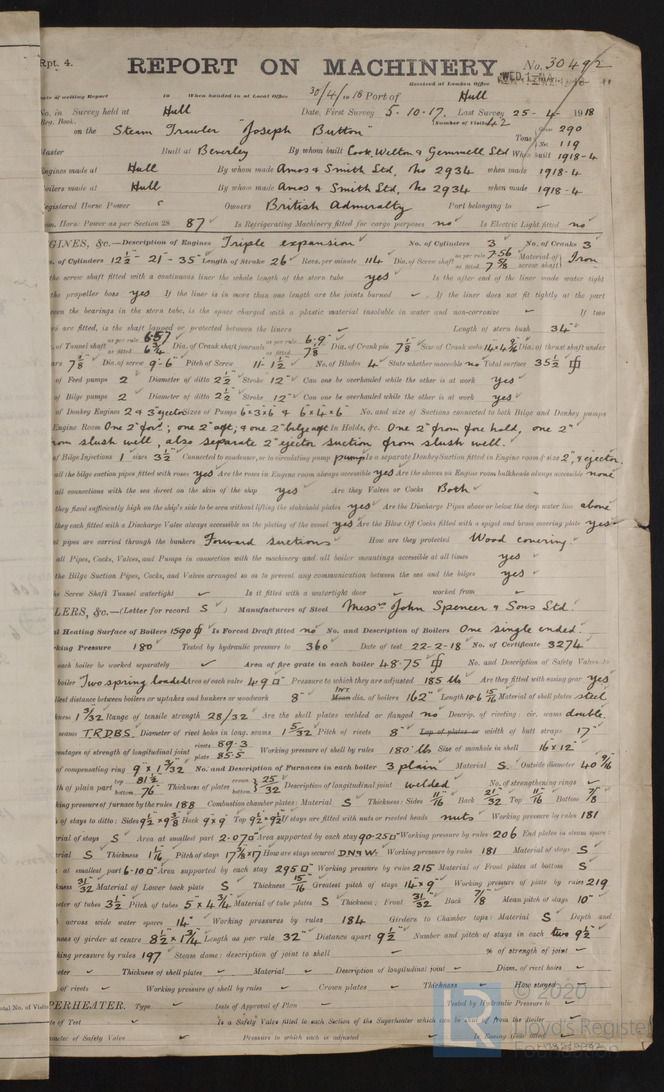 Rpt. 4.
REPORT ON MACHINERY
No. 30492
WED. 1 MAY
Received at London Office
Date of writing Report 19 When handed in at Local Office 30/4/1918 Port of Hull
No. in Survey held at Hull Date, First Survey 5-10-17. Last Survey 25-4-1918
Reg. Book. (Number of Visits 42
on the Steam Trawler "Joseph Button" Tons Gross 290 Net 119
Master Built at Beverley By whom built Cook, Welton & Gemmell Ltd When built 1918-4
Engines made at Hull By whom made Amos & Smith Ltd, No 2934 when made 1918-4
Boilers made at Hull By whom made Amos & Smith Ltd, No 2934 when made 1918-4
Registered Horse Power Owners British Admiralty Port belonging to
Nom. Horse Power as per Section 28 87 Is Refrigerating Machinery fitted for cargo purposes no Is Electric Light fitted no
GINES, &c.—Description of Engines Triple expansion No. of Cylinders 3 No. of Cranks 3
of Cylinders 12½-21-35 Length of Stroke 26 Revs. per minute 114 Dia. of Screw shaft as per rule 7.56 as fitted 7⅝ Material of screw shaft Iron
the screw shaft fitted with a continuous liner the whole length of the stern tube yes Is the after end of the liner made water tight
the propeller boss yes If the liner is in more than one length are the joints burned If the liner does not fit tightly at the part
een the bearings in the stern tube, is the space charged with a plastic material insoluble in water and non-corrosive If two
s are fitted, is the shaft lapped or protected between the liners Length of stern bush 34"
of Tunnel shaft as per rule 6.57 as fitted 6¾ Dia. of Crank shaft journals as per rule 6.9" as fitted 7⅛ Dia. of Crank pin 7⅛ Size of Crank webs Dia. of thrust shaft under
ars 7⅛" Dia. of screw 9-6" Pitch of Screw 11-1½" No. of Blades 4 State whether moveable no Total surface 35½
of Feed pumps 2 Diameter of ditto 2½ Stroke 12" Can one be overhauled while the other is at work yes
of Bilge pumps 2 Diameter of ditto 2½ Stroke 12" Can one be overhauled while the other is at work yes
of Donkey Engines 2 & 3" ejector Sizes of Pumps 6×3×6 & 6×4×6 No. and size of Suctions connected to both Bilge and Donkey pumps
Engine Room One 2" for'd; one 2" aft; & one 2" bilge aft In Holds, &c. One 2" from fore hold, one 2"
from slush well, also separate 2" ejector suction from slush well.
of Bilge Injections 1 sizes 3½ Connected to condenser, or to circulating pump pump Is a separate Donkey Suction fitted in Engine room & size 2", & ejector.
all the bilge suction pipes fitted with roses yes Are the roses in Engine room always accessible yes Are the sluices on Engine room bulkheads always accessible none
all connections with the sea direct on the skin of the ship yes Are they Valves or Cocks Both
they fixed sufficiently high on the ship's side to be seen without lifting the stokehold plates yes Are the Discharge Pipes above or below the deep water line above
they each fitted with a Discharge Valve always accessible on the plating of the vessel yes Are the Blow Off Cocks fitted with a spigot and brass covering plate yes
at pipes are carried through the bunkers Forward suctions How are they protected Wood covering.
all Pipes, Cocks, Valves, and Pumps in connection with the machinery and all boiler mountings accessible at all times yes
the Bilge Suction Pipes, Cocks, and Valves arranged so as to prevent any communication between the sea and the bilges yes
the Screw Shaft Tunnel watertight Is it fitted with a watertight door worked from
LERS, &c.—(Letter for record S) Manufacturers of Steel Messrs John Spencer & Sons Ltd.
al Heating Surface of Boilers 1590 Is Forced Draft fitted no No. and Description of Boilers One single ended.
king Pressure 180 Tested by hydraulic pressure to 360 Date of test 22-2-18 No. of Certificate 3274
each boiler be worked separately Area of fire grate in each boiler 48.75 No. and Description of Safety Valves to
boiler Two spring loaded Area of each valve 4.9 Pressure to which they are adjusted 185 lb Are they fitted with easing gear yes
llest distance between boilers or uptakes and bunkers or woodwork 8" Int. dia. of boilers 162" Length 10-6 15/16 Material of shell plates steel
kness 1 3/32 Range of tensile strength 28/32 Are the shell plates welded or flanged no Descrip. of riveting: cir. seams double.
seams T.R.D.B.S. Diameter of rivet holes in long. seams 1 5/32 Pitch of rivets 8" Lap of plates or width of butt straps 17"
entages of strength of longitudinal joint rivets 89.3 plate 85.5 Working pressure of shell by rules 180 lb Size of manhole in shell 16×12"
of compensating ring 9"×1 3/32 No. and Description of Furnaces in each boiler 3 plain Material S Outside diameter 40 9/16
th of plain part top 81½ bottom 76" Thickness of plates crown bottom 25/32 Description of longitudinal joint welded No. of strengthening rings
king pressure of furnace by the rules 188 Combustion chamber plates: Material S Thickness: Sides 11/16 Back 21/32 Top 11/16 Bottom 7/8
of stays to ditto: Sides 9½×9⅜ Back 9×9 Top 9½×9½ If stays are fitted with nuts or riveted heads nuts Working pressure by rules 181
rial of stays S Area at smallest part 2.07 Area supported by each stay 90.25 Working pressure by rules 206 End plates in steam space:
rial S Thickness 1 1/16 Pitch of stays 17⅞×17 How are stays secured D.N&W. Working pressure by rules 181 Material of stays S
at smallest part 6.10 Area supported by each stay 295 Working pressure by rules 215 Material of Front plates at bottom S
kness 31/32 Material of Lower back plate S Thickness 15/16 Greatest pitch of stays 14×9" Working pressure of plate by rules 219
eter of tubes 3½ Pitch of tubes 5"×4¾ Material of tube plates S Thickness: Front 31/32 Back 7/8 Mean pitch of stays 10"
across wide water spaces 14" Working pressures by rules 184 Girders to Chamber tops: Material S Depth and
ness of girder at centre 8½"×1¾ Length as per rule 32" Distance apart 9½ Number and pitch of stays in each two 9½"
king pressure by rules 197 Steam dome: description of joint to shell % of strength of joint
eter Thickness of shell plates Material Description of longitudinal joint Diam. of rivet holes
of rivets Working pressure of shell by rules Crown plates Thickness How stayed
PERHEATER. Type Date of Approval of Plan Tested by Hydraulic Pressure to
te of Test Is a Safety Valve fitted to each Section of the Superheater which can be shut off from the Boiler
meter of Safety Valve Pressure to which each is adjusted Is Easing Gear fitted
© 2020
Lloyd's Register
Foundation